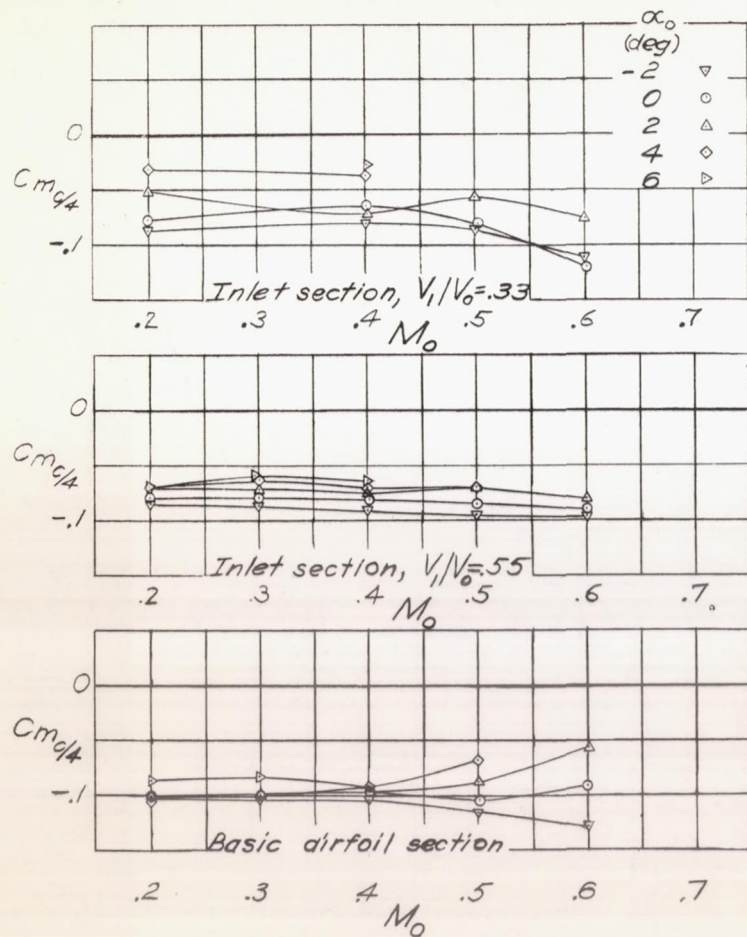 α₀
(deg)
-2 ▽
0 ○
2 △
4 ◇
6 ▷
0
Cm_c/4
-.1
Inlet section, V₁/V₀=.33
.2 .3 .4 .5 .6 .7
M₀
0
Cm_c/4
-.1
Inlet section, V₁/V₀=.55
.2 .3 .4 .5 .6 .7
M₀
0
Cm_c/4
-.1
Basic airfoil section
.2 .3 .4 .5 .6 .7
M₀